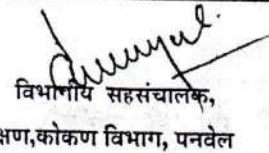 विभागीय सहसंचालक,
क्षण,कोकण विभाग, पनवेल